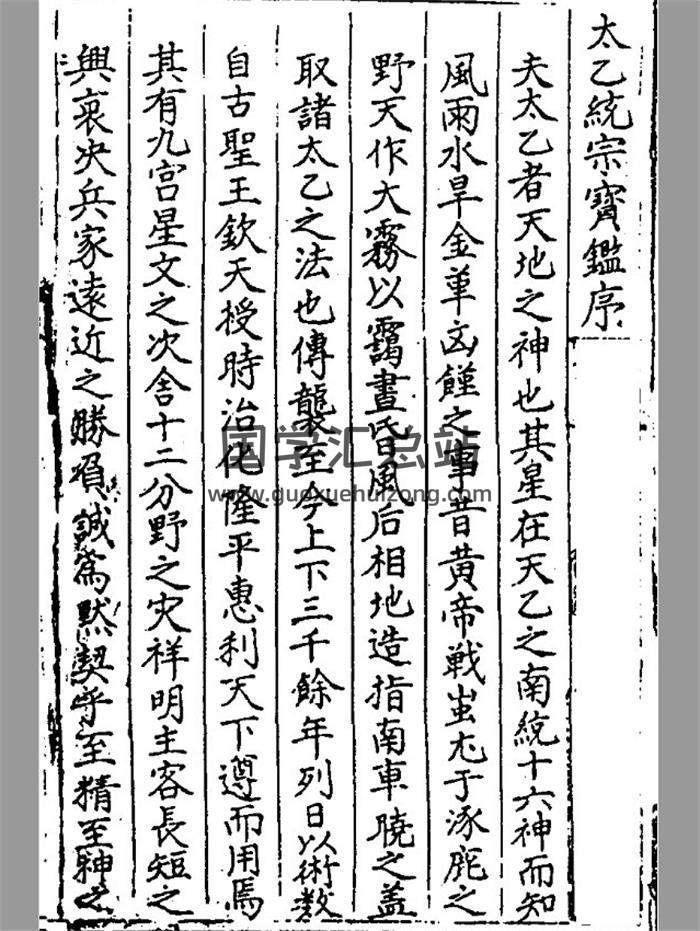 太乙統宗寶鑑序
夫太乙者天地之神也其星在天乙之南統十六神而知
風雨水旱金革凶饉之事昔黄帝戰蚩尤于涿鹿之
野天作大霧以靄晝昏風后相地造指南車曉之盖
取諸太乙之法也傳襲至今上下三千餘年列日以術数
自古聖王欽天授時治化隆平惠利天下遵而用焉
其有九宫星文之次舍十二分野之灾祥明主客長短之
興衰决兵家遠近之勝負誠為黙契乎至精至神之
国学汇总站
www.guoxuehuizong.com